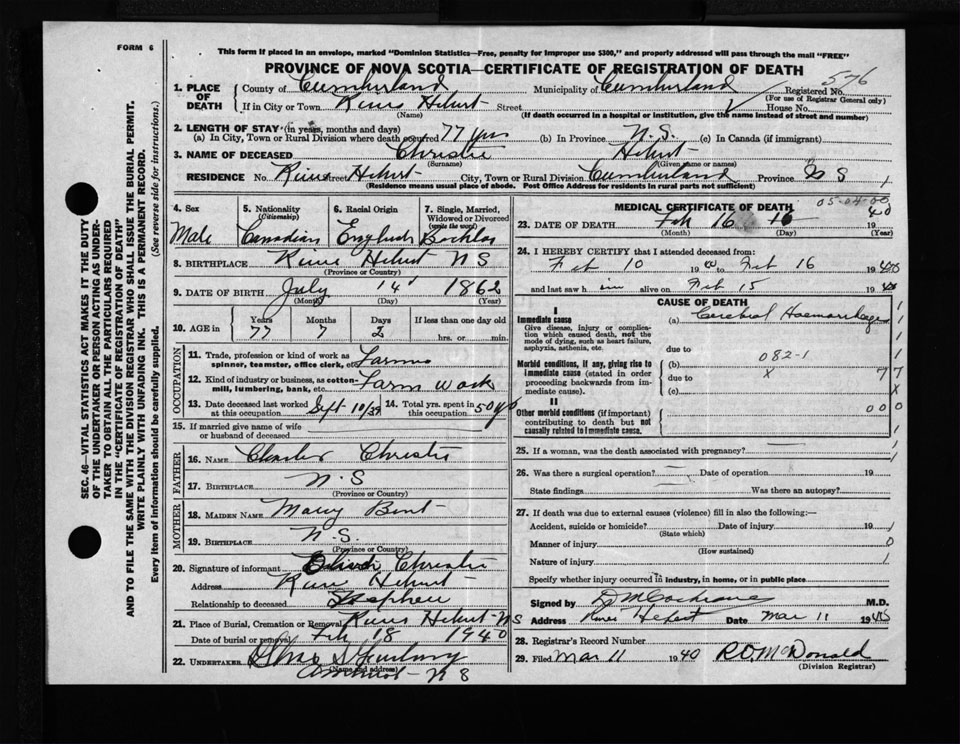 FORM 6
This form if placed in an envelope, marked "Dominion Statistics—Free, penalty for improper use $300," and properly addressed will pass through the mail "FREE"
PROVINCE OF NOVA SCOTIA—CERTIFICATE OF REGISTRATION OF DEATH
576
1. PLACE OF DEATH
County of Cumberland Municipality of Cumberland Registered No.
(For use of Registrar General only)
If in City or Town River Hebert Street House No.
(Name) (If death occurred in a hospital or institution, give the name instead of street and number)
2. LENGTH OF STAY (in years, months and days)
(a) In City, Town or Rural Division where death occurred 77 yrs (b) In Province N.S. (c) In Canada (if immigrant)
3. NAME OF DECEASED Christie Hebert
(Surname) (Given name or names)
RESIDENCE No. River Street Hebert City, Town or Rural Division Cumberland Province N S
(Residence means usual place of abode. Post Office Address for residents in rural parts not sufficient)
4. Sex 5. Nationality (Citizenship) 6. Racial Origin 7. Single, Married, Widowed or Divorced (write the word)
Male Canadian English
8. BIRTHPLACE River Hebert N S
(Province or Country)
9. DATE OF BIRTH July 14 1862
(Month) (Day) (Year)
10. AGE in Years Months Days If less than one day old
77 7 2 hrs. or min.
OCCUPATION
11. Trade, profession or kind of work as spinner, teamster, office clerk, etc.
12. Kind of industry or business, as cotton-mill, lumbering, bank, etc. Farm Work
13. Date deceased last worked at this occupation Sept 10/39 14. Total yrs. spent in this occupation 50
15. If married give name of wife or husband of deceased
FATHER
16. NAME Charles Christie
17. BIRTHPLACE N.S
(Province or Country)
MOTHER
18. MAIDEN NAME Mary Bent
19. BIRTHPLACE N.S.
(Province or Country)
20. Signature of informant Christie
Address River Hebert
Relationship to deceased Nephew
21. Place of Burial, Cremation or Removal River Hebert N S
Date of burial or removal Feb 18 1940
22. UNDERTAKER
(Name and address)
Amherst N S
MEDICAL CERTIFICATE OF DEATH
05-04-00
23. DATE OF DEATH Feb 16 16 1940
(Month) (Day) (Year)
24. I HEREBY CERTIFY that I attended deceased from:
Feb 10 1940 to Feb 16 1940
and last saw him alive on Feb 15 1940
CAUSE OF DEATH
I
Immediate cause (a) Cerebral Haemorrhage
Give disease, injury or complication which caused death, not the mode of dying, such as heart failure, asphyxia, asthenia, etc.
due to
082-1
Morbid conditions, if any, giving rise to immediate cause (stated in order proceeding backwards from immediate cause).
(b) x
due to 77
(c) X
II
Other morbid conditions (if important) contributing to death but not causally related to immediate cause.
000
25. If a woman, was the death associated with pregnancy?
26. Was there a surgical operation? Date of operation 19
State findings Was there an autopsy?
27. If death was due to external causes (violence) fill in also the following:—
Accident, suicide or homicide? Date of injury 19
(State which)
Manner of injury 0
(How sustained)
Nature of injury 1
Specify whether injury occurred in industry, in home, or in public place
Signed by D M Cochrane M.D.
Address River Hebert Date Mar 11 1940
28. Registrar's Record Number
29. Filed Mar 11 1940 R.O. McDonald
(Division Registrar)
SEC. 46—VITAL STATISTICS ACT MAKES IT THE DUTY
OF THE UNDERTAKER OR PERSON ACTING AS UNDER-
TAKER TO OBTAIN ALL THE PARTICULARS REQUIRED
IN THE "CERTIFICATE OF REGISTRATION OF DEATH"
AND TO FILE THE SAME WITH THE DIVISION REGISTRAR WHO SHALL ISSUE THE BURIAL PERMIT.
WRITE PLAINLY WITH UNFADING INK. THIS IS A PERMANENT RECORD.
Every item of information should be carefully supplied. (See reverse side for instructions.)